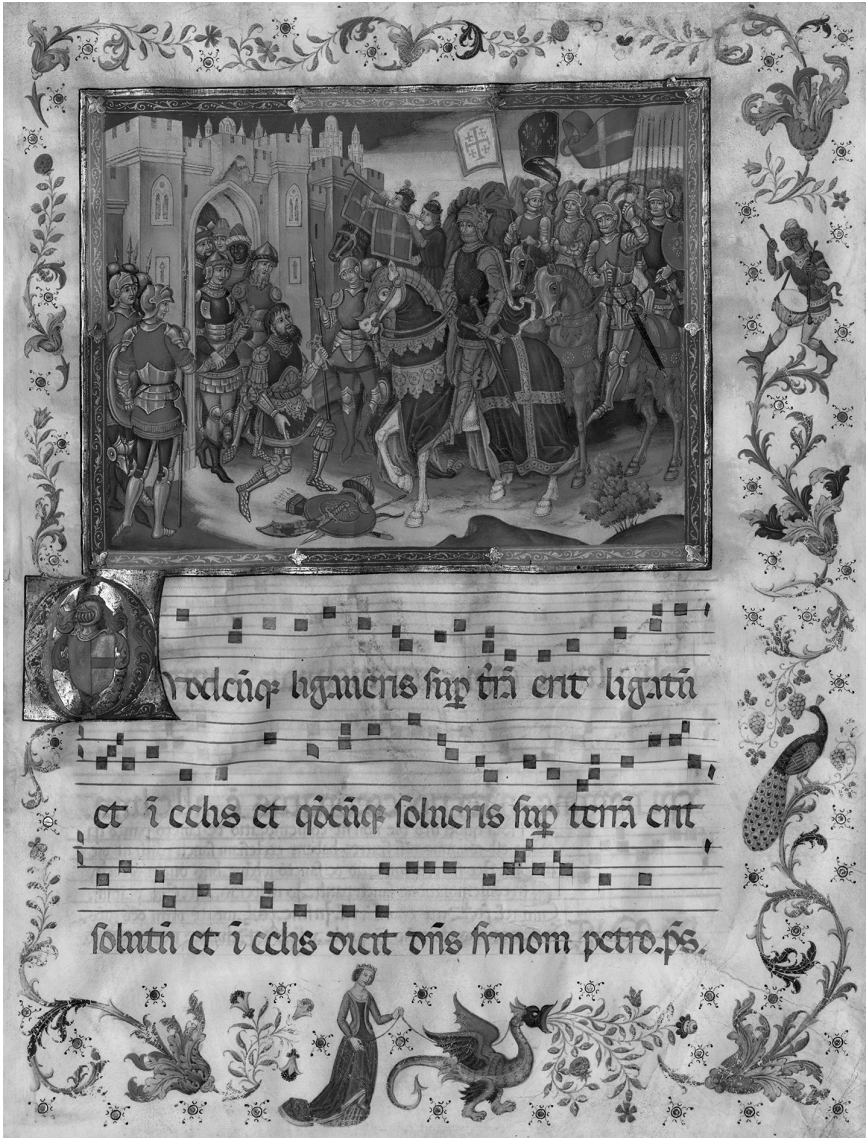 Quodcūqꝫ ligaueris suꝑ t̄rā erit ligatū
et ī celis et qd̄cūqꝫ solueris suꝑ terrā erit
solutū et ī celis dicit dn̄s symoni petro. p̄s.